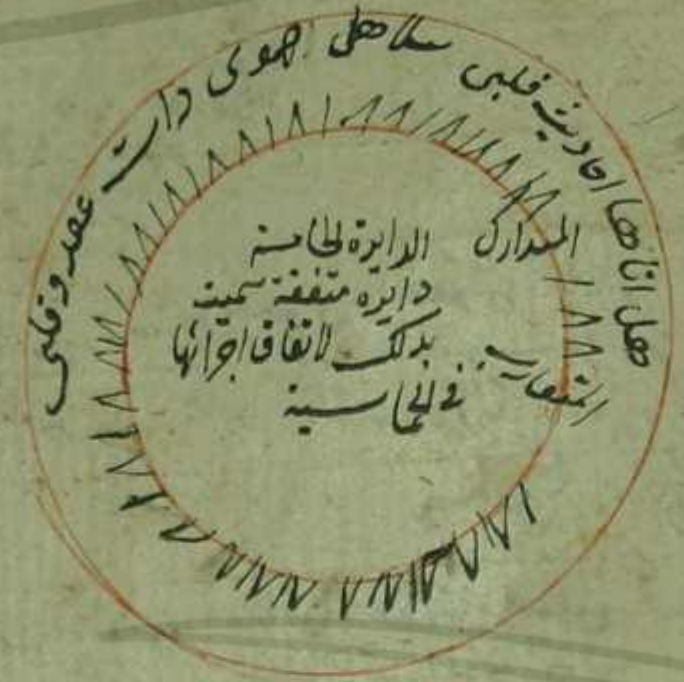 هل اتاها احاديث قلبى سلا هل هموى دات عقد وقلبى
المتدارك
المتقارب
الدايرة الخامسة
دايرة متفقة سميت
بدلك لاتفاق اجزائها
فى الخماسية